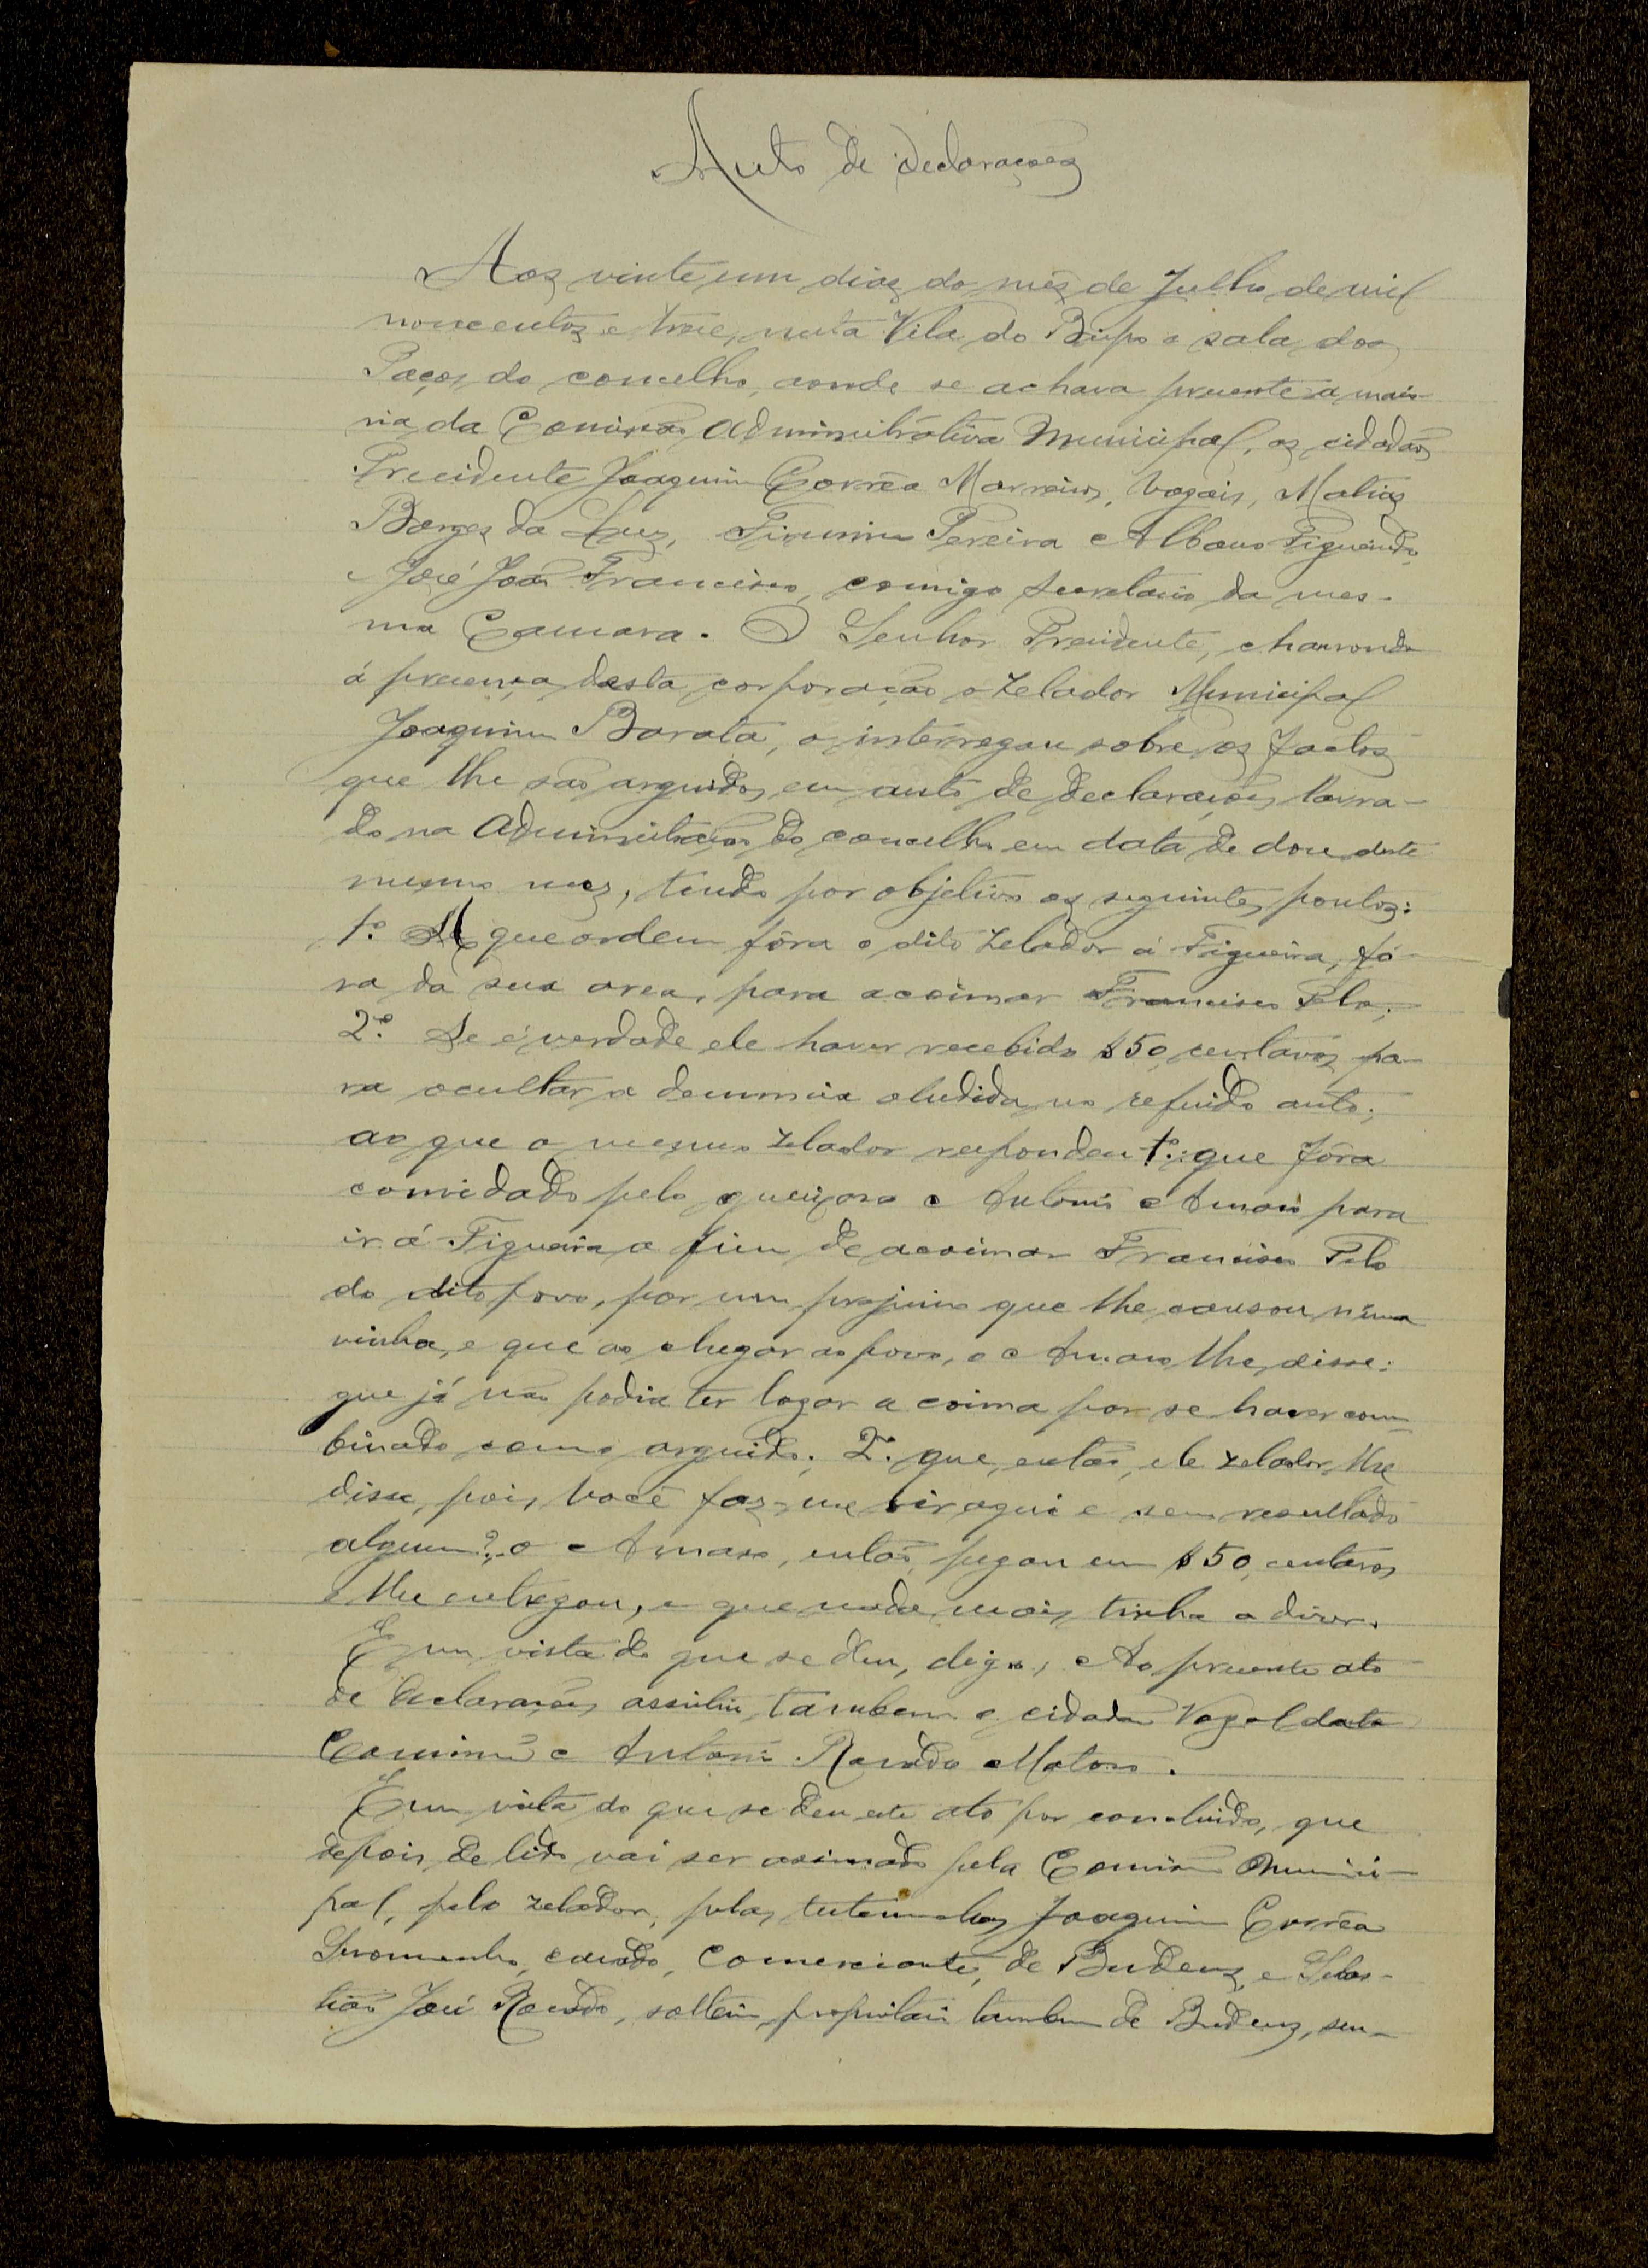 Auto de declarações
Aos vinte um dias do mês de Julho de mil
novecentos e treze, nesta Vila do Bispo e sala dos
Paços do concelho, aonde se achava presente a maio-
ria da Comissão Administrativa Municipal, os cidadãos
Precidente Joaquim Corrêa Marreiros, Vogais, Matias
Borges da Luz, Firmino Pereira Albano Figueiredo
José João Francisco, comigo Secretario da mes-
ma Camara. O Senhor Presidente, chamando
á presença desta corporação o zelador Municipal
Joaquim Barata, o interrogou sobre os factos
que lhe são arguidos em auto de declarações lavra-
do na Administração do concelho em data de doze deste
mesmo mez, tendo por objetivo os seguintes pontos:
1.º De que ordem fôra o dito zelador á Figueira, fó-
ra da sua area, para acoimar Francisco Pelo;
2.º Se é verdade ele haver recebido $50 centavos pa-
ra ocultar a denuncia aludida no referido auto;
ao que o mesmo zelador respondeu 1.º: que fôra
convidado pelo queixoso Antonio Amaro para
ir á Figueira a fim de acoimar Francisco Pelo
do dito povo, por um prejuizo que lhe causou n'uma
vinha, e que ao chegar ao povo, o Amaro lhe disse:
que já não podia ter logar a coima por se haver com-
binado com o arguido. 2.º que, então, ele zelador, lhe
disse, pois, você faz-me vir aqui e sem resultado
algum?, o Amaro, então, pegou em $50 centavos
e lhe entregou, e que nada mais tinha a dizer.
Em vista do que se deu, digo, Ao presente ato
de declarações assistiu tambem o cidadão Vogal desta
Comissão Antonio Rosado Matoso.
Em vista do que se deu este ato por concluido, que
depois de lido vai ser assinado pela Comissão Munici-
pal, pelo zelador, pelas testemunhas Joaquim Corrêa
Seromenho, casado, comerciante, de Budens, e Sebas-
tião José Rosado, solteiro, proprietario tambem de Budens, sen-